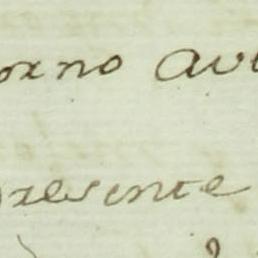 orno avu
presente